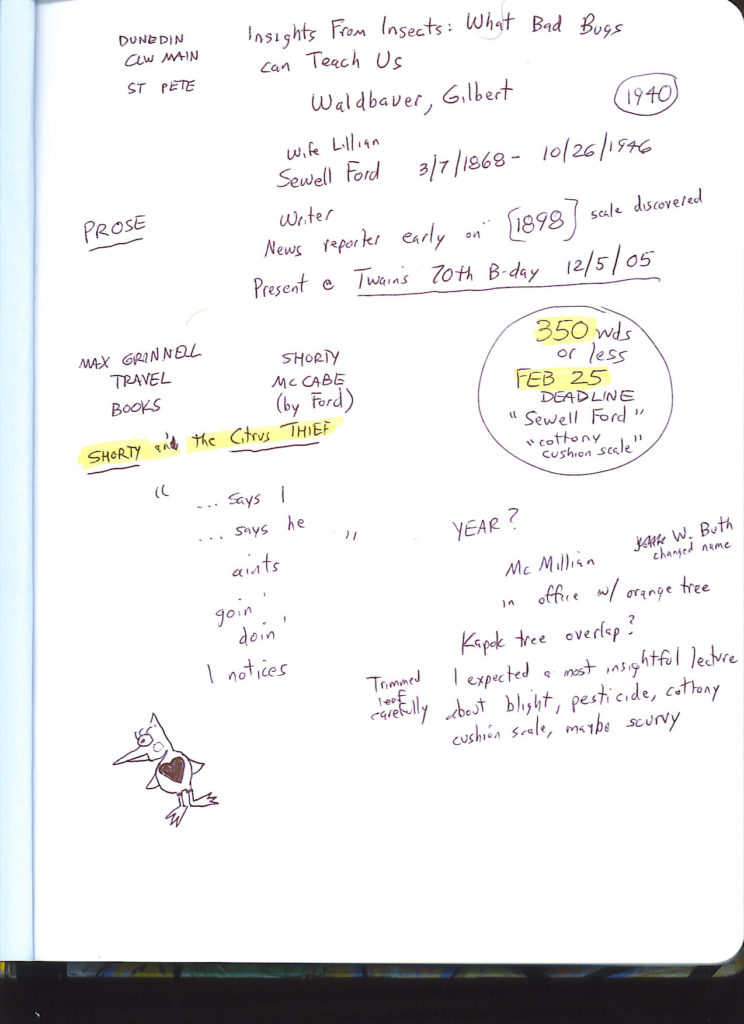 DUNEDIN
CLW MAIN
ST PETE
Insights From Insects: What Bad Bugs
can Teach Us
Waldbauer, Gilbert
1940
Wife Lillian
Sewell Ford 3/7/1868 - 10/26/1946
PROSE
Writer
News reporter early on [1898] scale discovered
Present @ Twain's 70th B-day 12/5/05
MAX GRINNELL
TRAVEL
BOOKS
SHORTY
McCABE
(by Ford)
350 wds
or less
FEB 25
DEADLINE
"Sewell Ford"
"cottony
cushion scale"
SHORTY and the Citrus THIEF
"
... says I
... says he
"
aints
goin'
doin'
I notices
YEAR?
McMillian
W. Buth
changed name
in office w/ orange tree
Kapok tree overlap?
Trimmed
leaf
carefully
I expected a most insightful lecture
about blight, pesticide, cottony
cushion scale, maybe scurvy